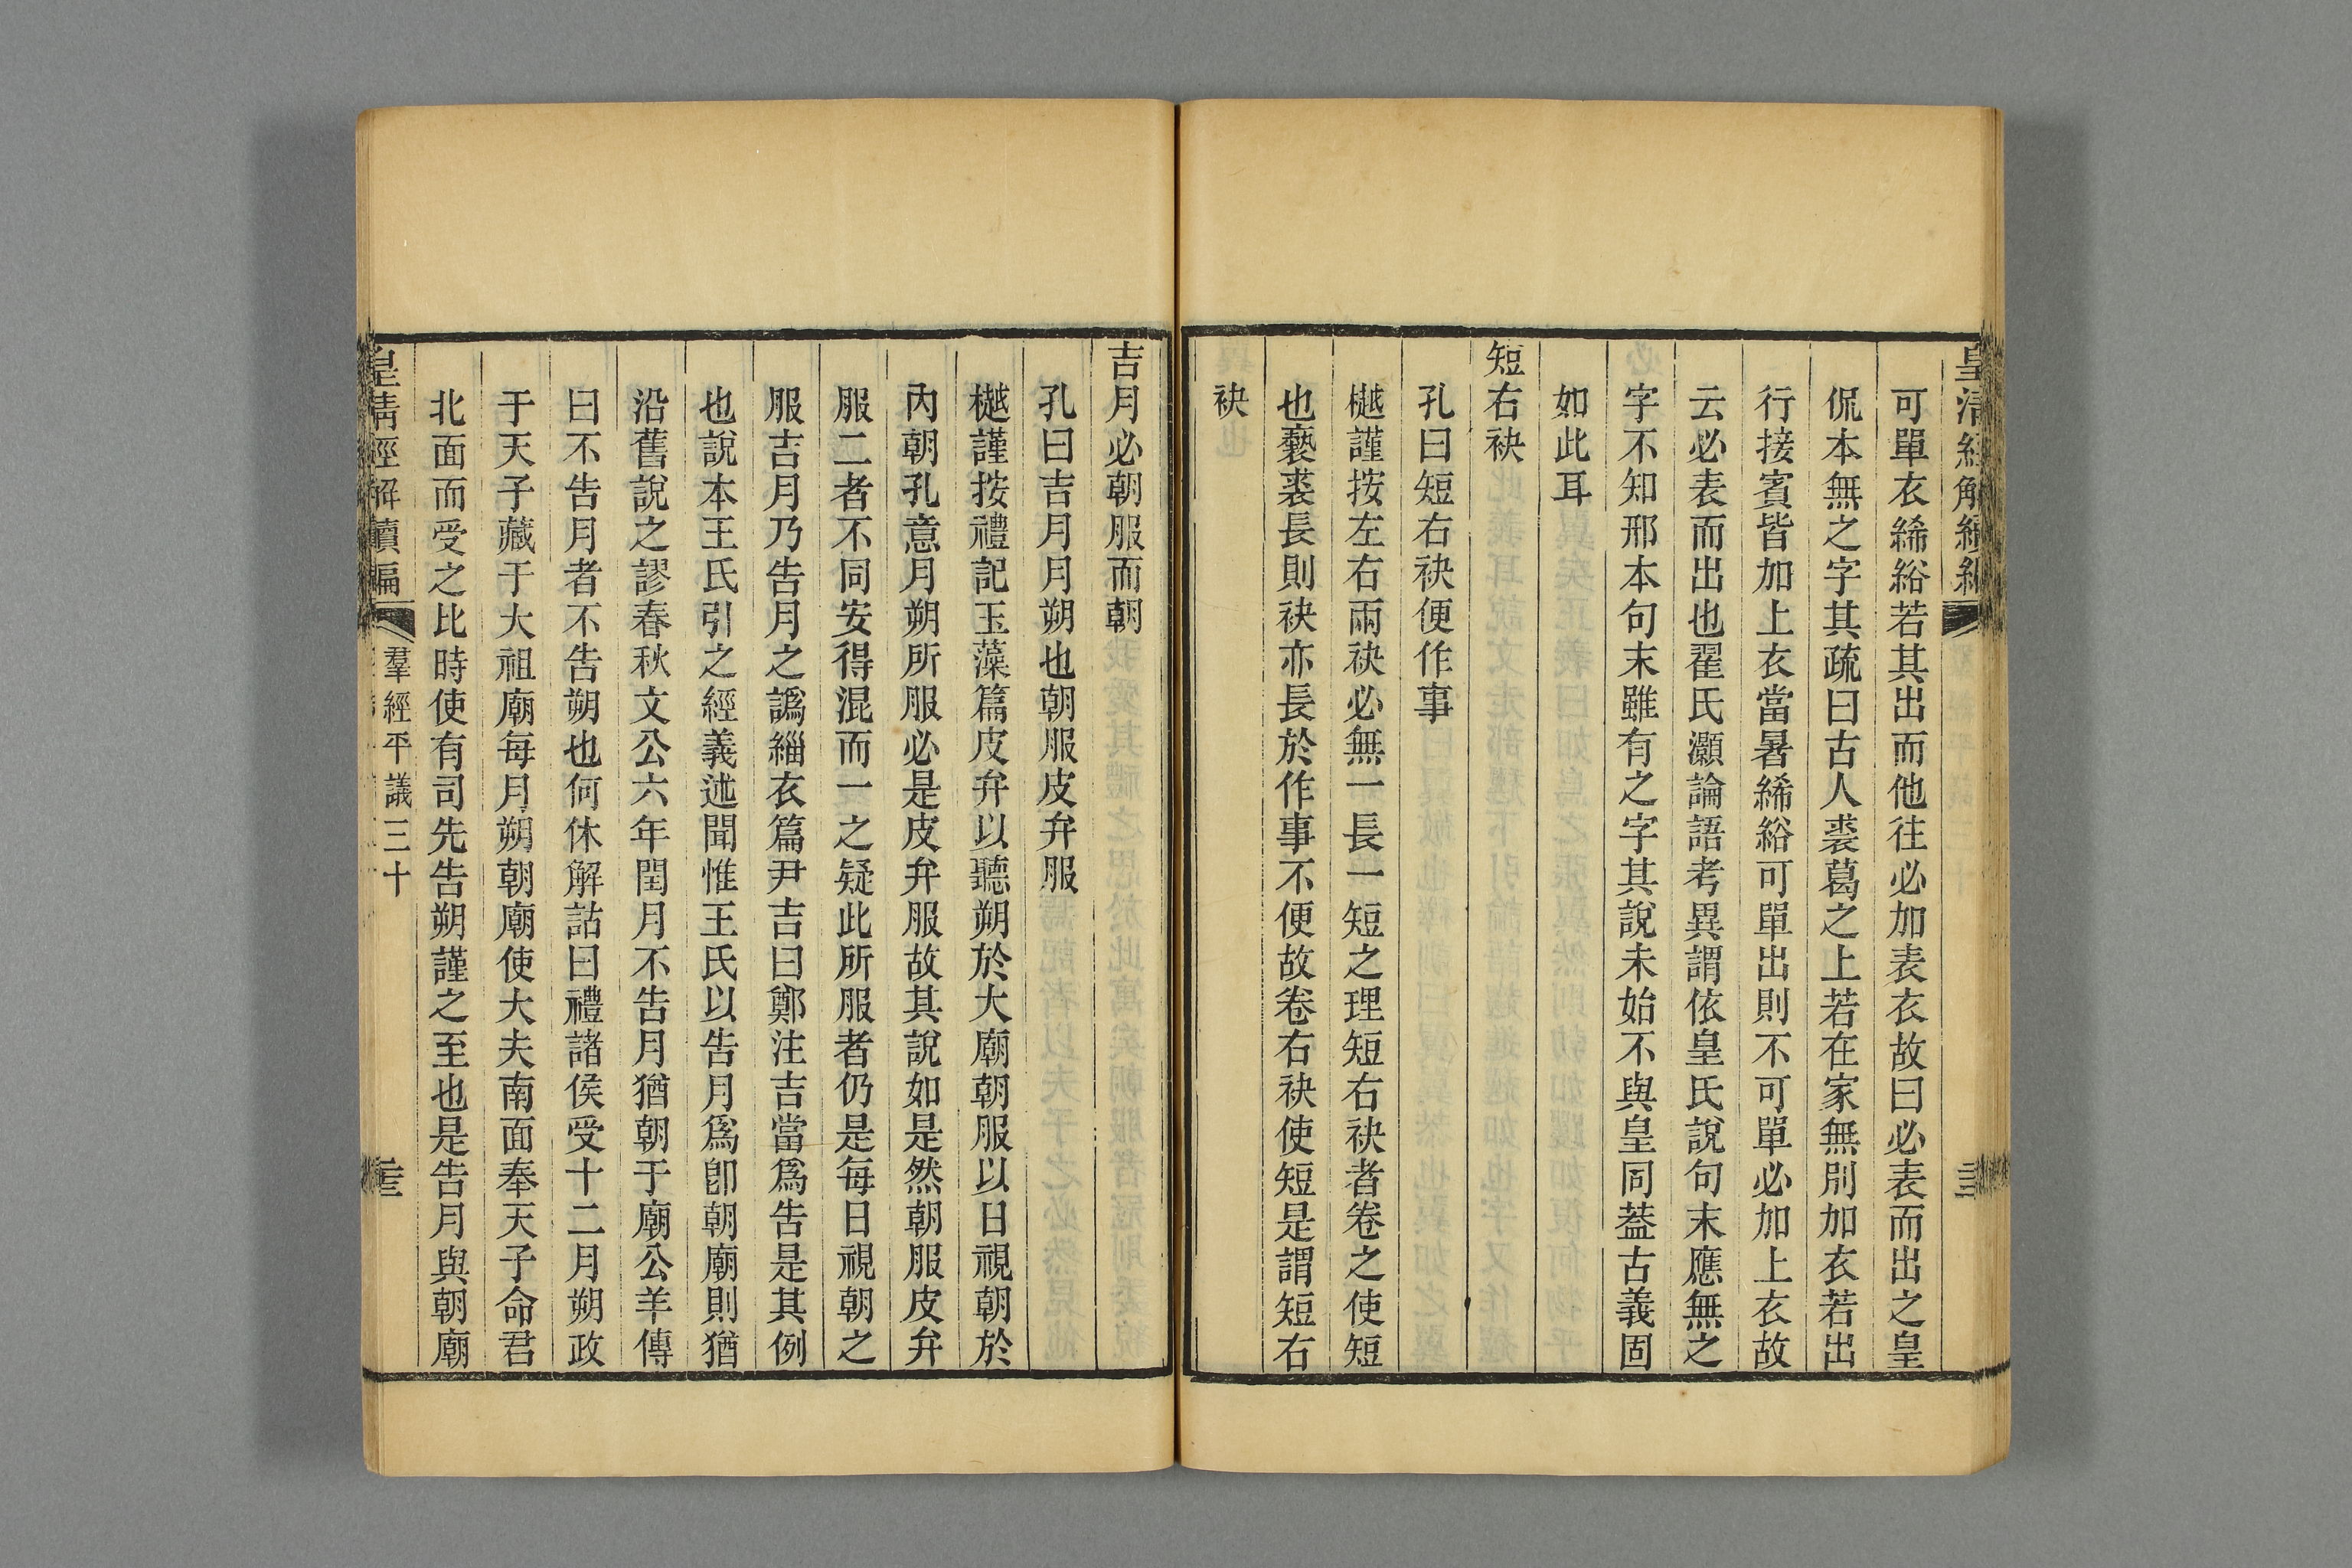 皇清經解續編
可單衣絺綌若其出而他往必加表衣故曰必表而出之皇
侃本無之字其疏曰古人裘葛之上若在家無別加衣若出
行接賓皆加上衣當暑絺綌可單出則不可單必加上衣故
云必表而出也翟氏灝論語考異謂依皇氏說句末應無之
字不知邢本句末雖有之字其說未始不與皇同葢古義固
如此耳
短右袂
孔曰短右袂便作事
樾謹按左右兩袂必無一長一短之理短右袂者卷之使短
也褻裘長則袂亦長於作事不便故卷右袂使短是謂短右
袂
吉月必朝服而朝
孔曰吉月月朔也朝服皮弁服
樾謹按禮記玉藻篇皮弁以聽朔於大廟朝服以日視朝於
內朝孔意月朔所服必是皮弁服故其說如是然朝服皮弁
服二者不同安得混而一之疑此所服者仍是每日視朝之
服吉月乃告月之譌緇衣篇尹吉曰鄭注吉當爲告是其例
也說本王氏引之經義述聞惟王氏以告月爲卽朝廟則猶
沿舊說之謬春秋文公六年閏月不告月猶朝于廟公羊傳
曰不告月者不告朔也何休解詁曰禮諸侯受十二月朔政
于天子藏于大祖廟每月朔朝廟使大夫南面奉天子命君
北面而受之比時使有司先告朔謹之至也是告月與朝廟
皇清經解續編
羣經平議三十